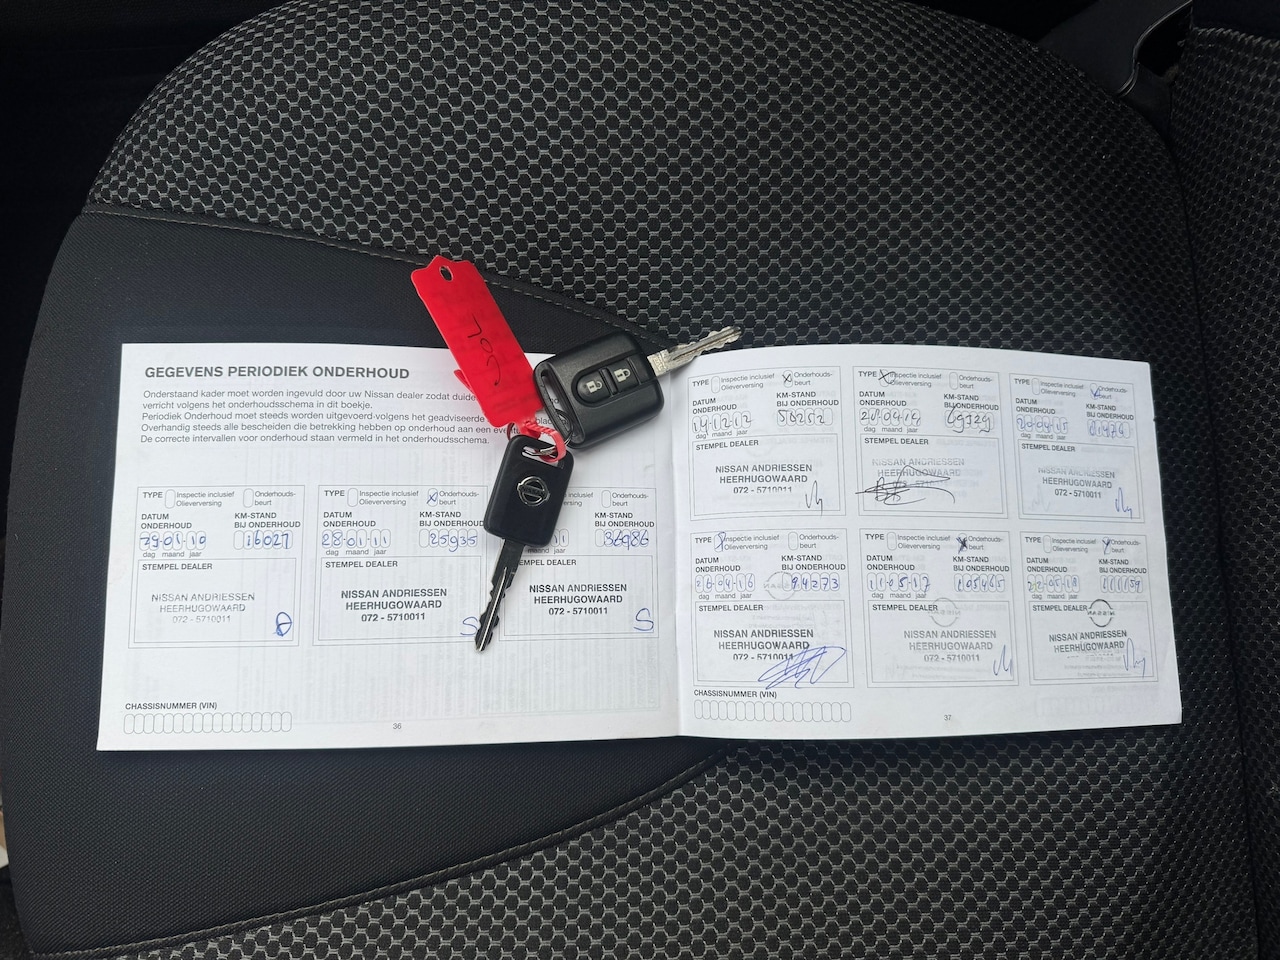 GEGEVENS PERIODIEK ONDERHOUD
Onderstaand kader moet worden ingevuld door uw Nissan dealer zodat
verricht volgens het onderhoudsschema in dit boekje.
Periodiek Onderhoud moet steeds worden uitgevoerd volgens het geadviseerde
Overhandig steeds alle bescheiden die betrekking hebben op onderhoud aan een
De correcte intervallen voor onderhoud staan vermeld in het onderhoudsschema.
TYPE Inspectie inclusief Olieverversing Onderhouds-beurt
DATUM ONDERHOUD KM-STAND BIJ ONDERHOUD
29-01-10 16027
dag maand jaar
STEMPEL DEALER
NISSAN ANDRIESSEN
HEERHUGOWAARD
072 - 5710011
TYPE Inspectie inclusief Olieverversing Onderhouds-beurt
DATUM ONDERHOUD KM-STAND BIJ ONDERHOUD
28-01-11 25935
dag maand jaar
STEMPEL DEALER
NISSAN ANDRIESSEN
HEERHUGOWAARD
072 - 5710011
inclusief Onderhouds-beurt
KM-STAND BIJ ONDERHOUD
36986
jaar
DEALER
NISSAN ANDRIESSEN
HEERHUGOWAARD
072 - 5710011
CHASSISNUMMER (VIN)
36
TYPE Inspectie inclusief Olieverversing Onderhouds-beurt
DATUM ONDERHOUD KM-STAND BIJ ONDERHOUD
50252
dag maand jaar
STEMPEL DEALER
NISSAN ANDRIESSEN
HEERHUGOWAARD
072 - 5710011
TYPE Inspectie inclusief Olieverversing Onderhouds-beurt
DATUM ONDERHOUD KM-STAND BIJ ONDERHOUD
dag maand jaar
STEMPEL DEALER
NISSAN ANDRIESSEN
HEERHUGOWAARD
TYPE Inspectie inclusief Olieverversing Onderhouds-beurt
DATUM ONDERHOUD KM-STAND BIJ ONDERHOUD
20-04-15
dag maand jaar
STEMPEL DEALER
NISSAN ANDRIESSEN
HEERHUGOWAARD
072 - 5710011
TYPE Inspectie inclusief Olieverversing Onderhouds-beurt
DATUM ONDERHOUD KM-STAND BIJ ONDERHOUD
94273
dag maand jaar
STEMPEL DEALER
NISSAN ANDRIESSEN
HEERHUGOWAARD
072 - 5710011
TYPE Inspectie inclusief Olieverversing Onderhouds-beurt
DATUM ONDERHOUD KM-STAND BIJ ONDERHOUD
11-05-17 105465
dag maand jaar
STEMPEL DEALER
NISSAN ANDRIESSEN
HEERHUGOWAARD
072 - 5710011
TYPE Inspectie inclusief Olieverversing Onderhouds-beurt
DATUM ONDERHOUD KM-STAND BIJ ONDERHOUD
22-05-18
dag maand jaar
STEMPEL DEALER
NISSAN ANDRIESSEN
HEERHUGOWAARD
072 - 5710011
CHASSISNUMMER (VIN)
37